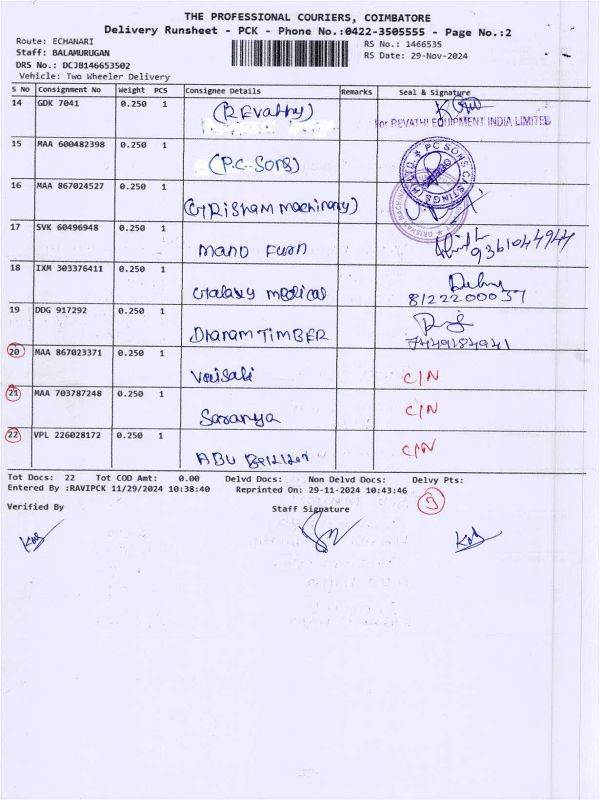 THE PROFESSIONAL COURIERS, COIMBATORE
Delivery Runsheet - PCK - Phone No.:0422-3505555 - Page No.:2
Route: ECHANARI RS No.: 1466535
Staff: BALAMURUGAN RS Date: 29-Nov-2024
DRS No.: DCJB146653502
Vehicle: Two Wheeler Delivery
S No Consignment No Weight PCS Consignee Details Remarks Seal & Signature
14 GDK 7041 0.250 1 (REvathy)
For REVATHI EQUIPMENT INDIA LIMITED
S No Consignment No Weight PCS Consignee Details Remarks Seal & Signature
15 MAA 600482398 0.250 1 (P.C. Sons) PC SONS CASTINGS (P) LTD
16 MAA 867024527 0.250 1 (GRisham machinary) GRISHAM MACHINARY
17 SVK 60496948 0.250 1 mano Furn 9361044944
18 IXM 303376411 0.250 1 Galaxy medical 8122200037
19 DDG 917292 0.250 1 Dharam TIMBER 7449184941
20 MAA 867023371 0.250 1 Vaisali C/N
21 MAA 703787248 0.250 1 Saranya C/N
22 VPL 226028172 0.250 1 ABU C/N
Tot Docs: 22 Tot COD Amt: 0.00 Delvd Docs: Non Delvd Docs: Delvy Pts:
Entered By :RAVIPCK 11/29/2024 10:38:40 Reprinted On: 29-11-2024 10:43:46
Verified By Staff Signature